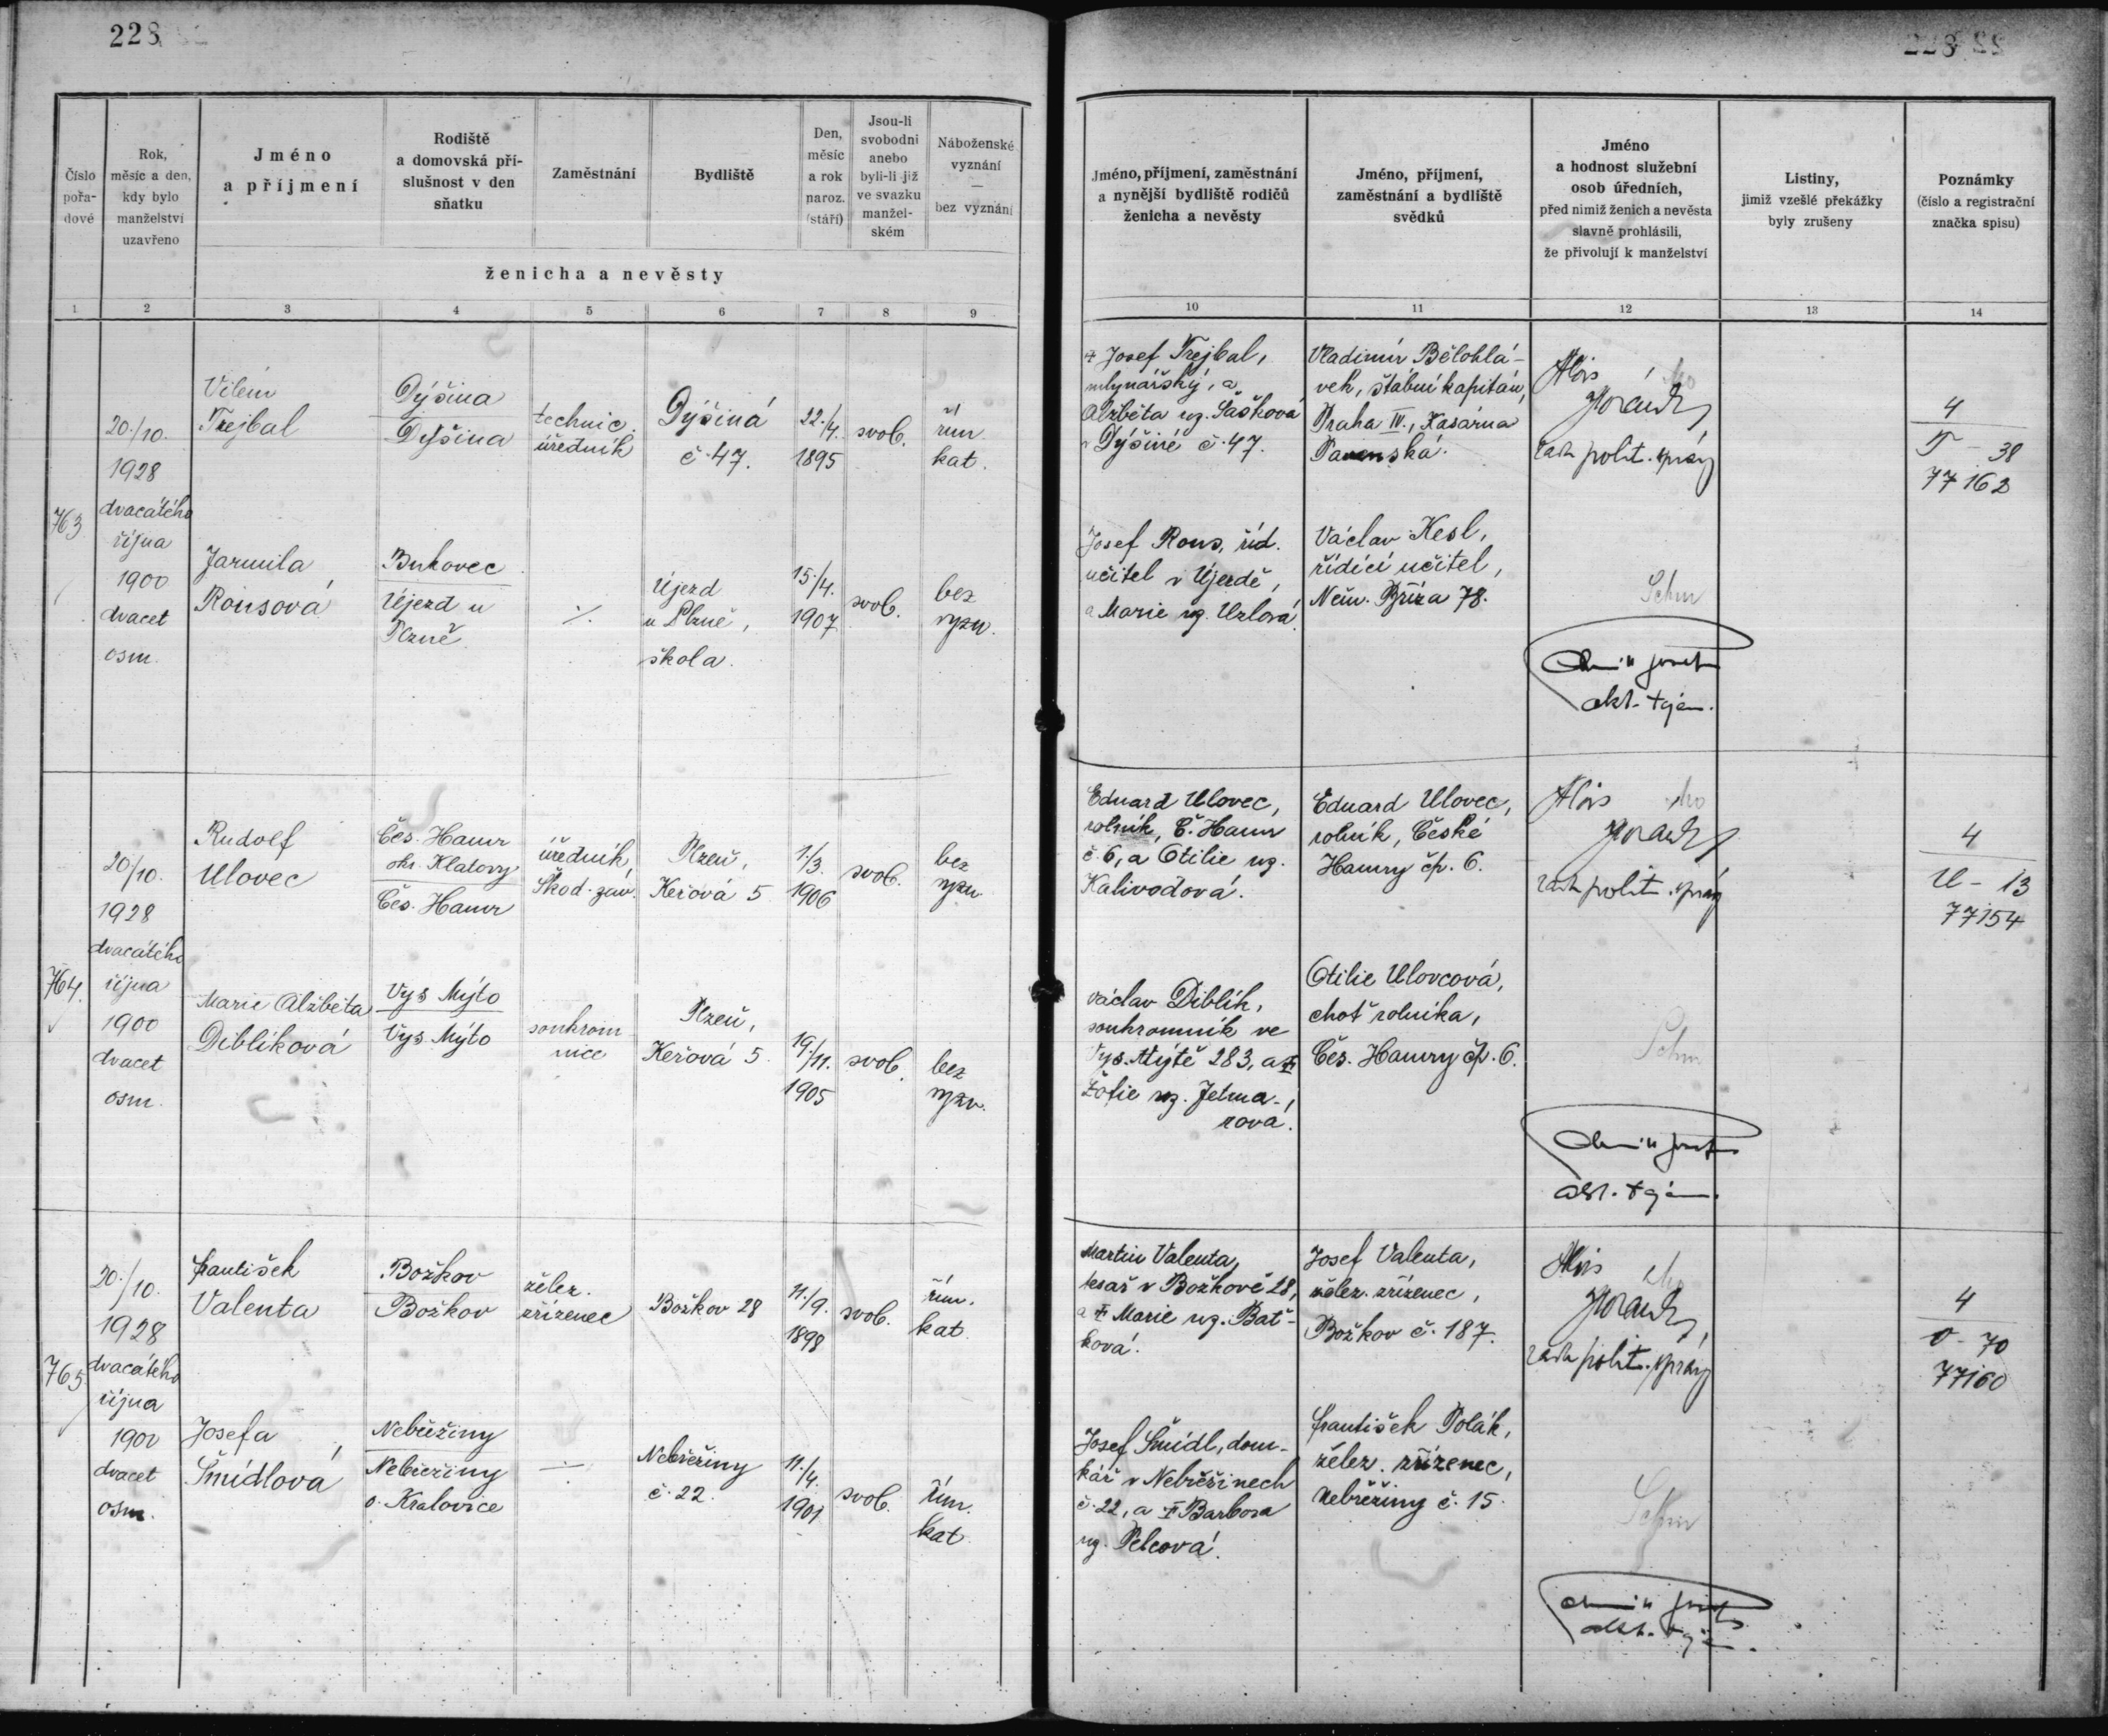 228
Číslo pořa-dové
Rok, měsíc a den, kdy bylo manželství uzavřeno
Jméno a příjmení
Rodiště a domovská pří-slušnost v den sňatku
Zaměstnání
Bydliště
Den, měsíc a rok naroz. (stáří)
Jsou-li svobodni anebo byli-li již ve svazku manžel-ském
Náboženské vyznání — bez vyznání
ženicha a nevěsty
Jméno, příjmení, zaměstnání a nynější bydliště rodičů ženicha a nevěsty
Jméno, příjmení, zaměstnání a bydliště svědků
Jméno a hodnost služební osob úředních, před nimiž ženich a nevěsta slavně prohlásili, že přivolují k manželství
Listiny, jimiž vzešlé překážky byly zrušeny
Poznámky (číslo a registrační značka spisu)
1 2 3 4 5 6 7 8 9 10 11 12 13 14
763
20./10.
1928
dvacátého
října
1900
dvacet
osm.
Vilém
Trejbal
Dýšina
Dýšina
technic.
úředník
Dýšiná
č. 47.
22./4.
1895
svob.
řím.
kat.
Josef Trejbal,
mlynářský, a
Alžběta roz. Šašková
v Dýšině č. 47.
Vladimír Bělohlá-
vek, štábní kapitán,
Praha IV., Kasárna
Alois
rada polit. správy
4
T - 38
77162
Jarmila
Rousová
Bukovec
Újezd u
Plzně
Újezd
u Plzně,
škola.
15./4.
1907
svob.
bez
vyzn.
Josef Rous, říd.
učitel v Újezdě,
a Marie roz. Uzlová.
Václav Kesl,
řídící učitel,
Něm. Bříza 78.
764.
20/10.
1928
dvacátého
října
1900
dvacet
osm.
Rudolf
Ulovec
Čes. Hamr
okr. Klatovy
Čes. Hamr
úředník
Škod. záv.
Plzeň,
Keřová 5
1./3.
1906
svob.
bez
vyzn
Eduard Ulovec,
rolník, Č. Hamr
č. 6, a Otilie roz.
Kalivodová.
Eduard Ulovec,
rolník, České
Hamry čp. 6.
Alois
rada polit. správy
4
U - 13
77154
Marie Alžběta
Diblíková
Vys Mýto
Vys. Mýto
soukrom
nice
Plzeň,
Keřová 5
19./11.
1905
svob.
bez
vyzn.
Václav Diblík,
soukromník ve
Vys. Mýtě 283, a
Žofie roz. Jetma-
rová.
Otilie Ulovcová,
choť rolníka,
Čes. Hamry čp. 6.
765
20./10.
1928
dvacátého
října
1900
dvacet
osm.
František
Valenta
Božkov
Božkov
želez.
zřízenec
Božkov 28
11./9.
1898
svob.
řím.
kat.
Martin Valenta,
tesař v Božkově 28,
a Marie roz. Bat-
ková.
Josef Valenta,
želez. zřízenec,
Božkov č. 187.
Alois
rada polit. správy
4
V - 70
77160
Josefa
Šmídlová
Nebřeziny
Nebřeziny
o. Kralovice
Nebřeziny
č. 22.
11./4.
1901
svob.
řím.
kat.
Josef Šmídl, dom-
kář v Nebřezinech
č. 22, a Barbora
roz. Pelcová.
František Polák,
želez. zřízenec,
Nebřeziny č. 15.